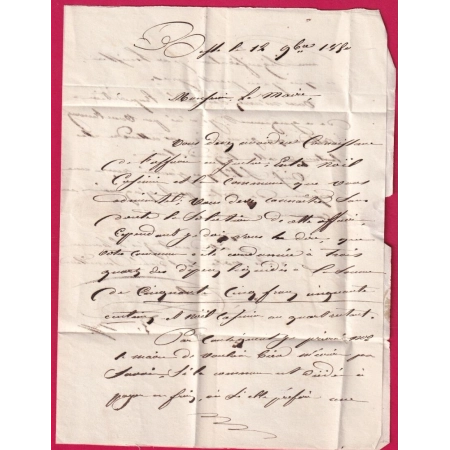 le 12 9bre 18
Monsieur Le Maire
Vous devez avoir Connaissance
De l'affaire en justice, Entre Noël
Casimir et la Commune que vous
administrez. Vous devez connaître sans
doute la Solution de cette affaire
Cependant je dois vous le dire, que
votre commune a été condamnée à trois
quarts des dépens liquidés à la Somme
de Cinquante Cinq francs cinquante
centimes, et Noël Casimir au quart restant.
Par Conséquent je prie
le maire de vouloir bien m'
Savoir Si la commune est décidée à
payer ces frais, ou Si elle préfère une